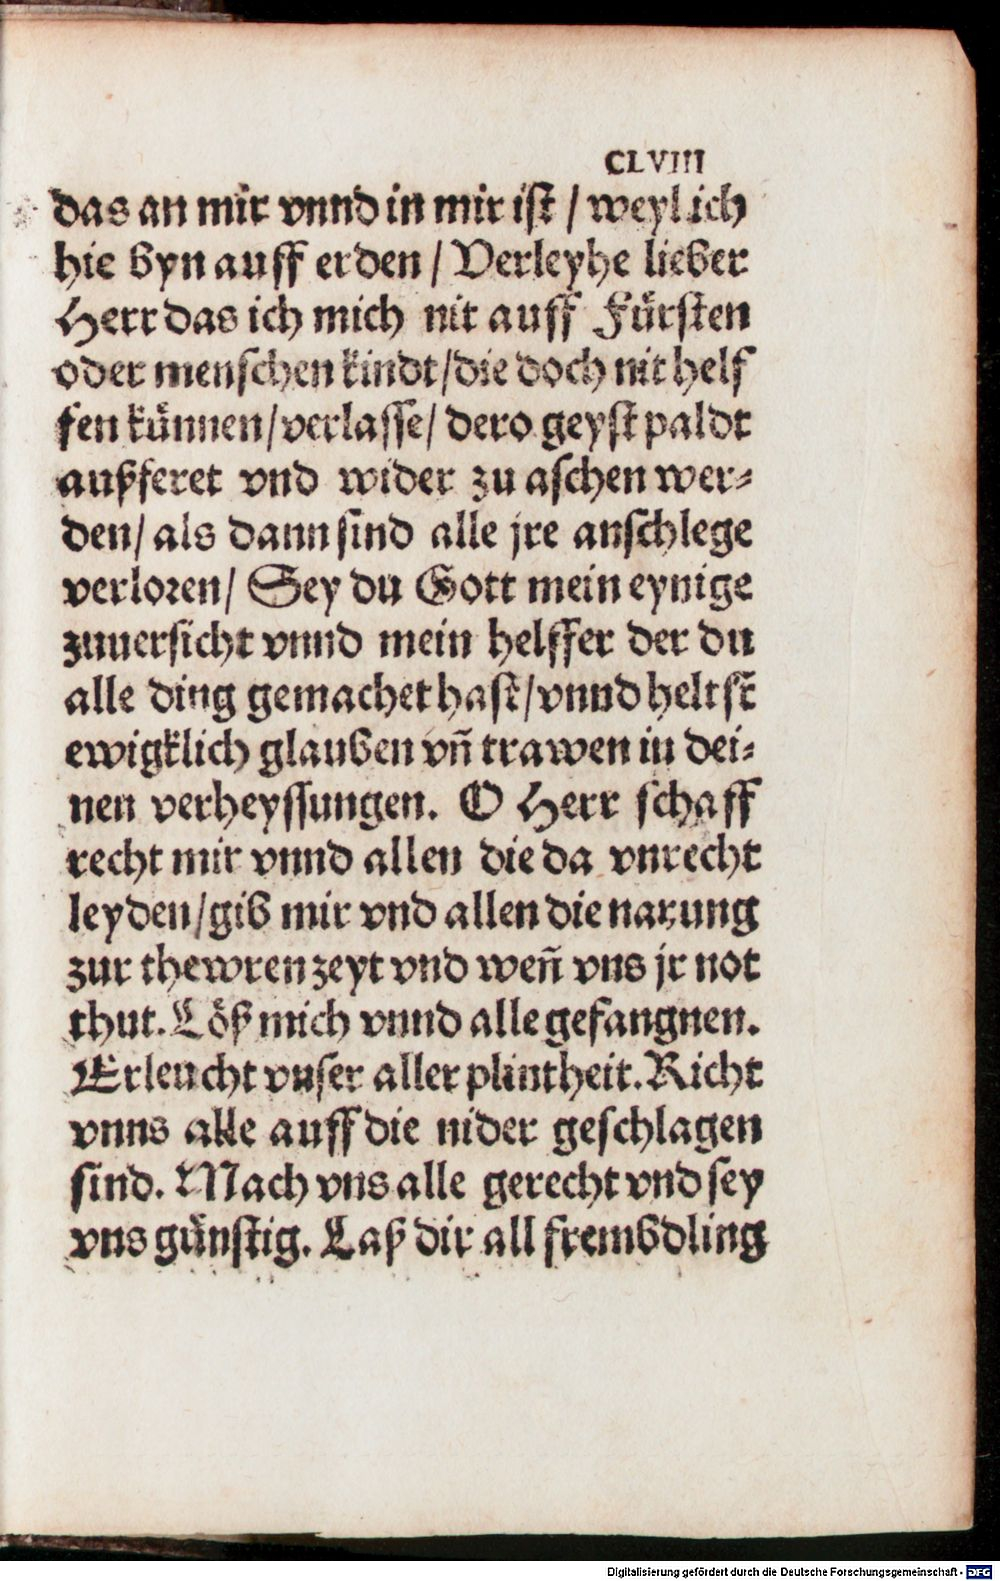 CLVIII
das an mir vnnd in mir ist / weyl ich
hie byn auff erden / Verleyhe lieber
Herr das ich mich nit auff Fürsten
oder menschen kindt / die doch nit helf
fen künnen / verlasse / dero geyst paldt
außferet vnd wider zu aschen wer⸗
den / als dann sind alle jre anschlege
verloren / Sey du Gott mein eynige
zuuersicht vnnd mein helffer der du
alle ding gemachet hast / vnnd heltst
ewigklich glauben vñ trawen in dei⸗
nen verheyssungen. O Herr schaff
recht mir vnnd allen die da vnrecht
leyden / gib mir vnd allen die narung
zur thewren zeyt vnd weñ vns jr not
thut. Löß mich vnnd alle gefangnen.
Erleucht vnser aller plintheit. Richt
vnns alle auff die nider geschlagen
sind. Mach vns alle gerecht vnd sey
vns günstig. Laß dir all frembdling
Digitalisierung gefördert durch die Deutsche Forschungsgemeinschaft - DFG